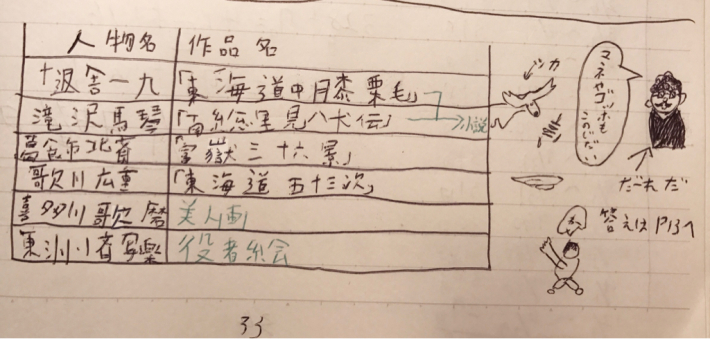 人物名 作品名
十返舎一九 「東海道中膝栗毛」
滝沢馬琴 「南総里見八犬伝」 →小説
葛飾北斎 「富嶽三十六景」
歌川広重 「東海道五十三次」
喜多川歌麿 美人画
東洲斎写楽 役者絵
マネやゴッホも
だーれだ
答えは P13へ
33